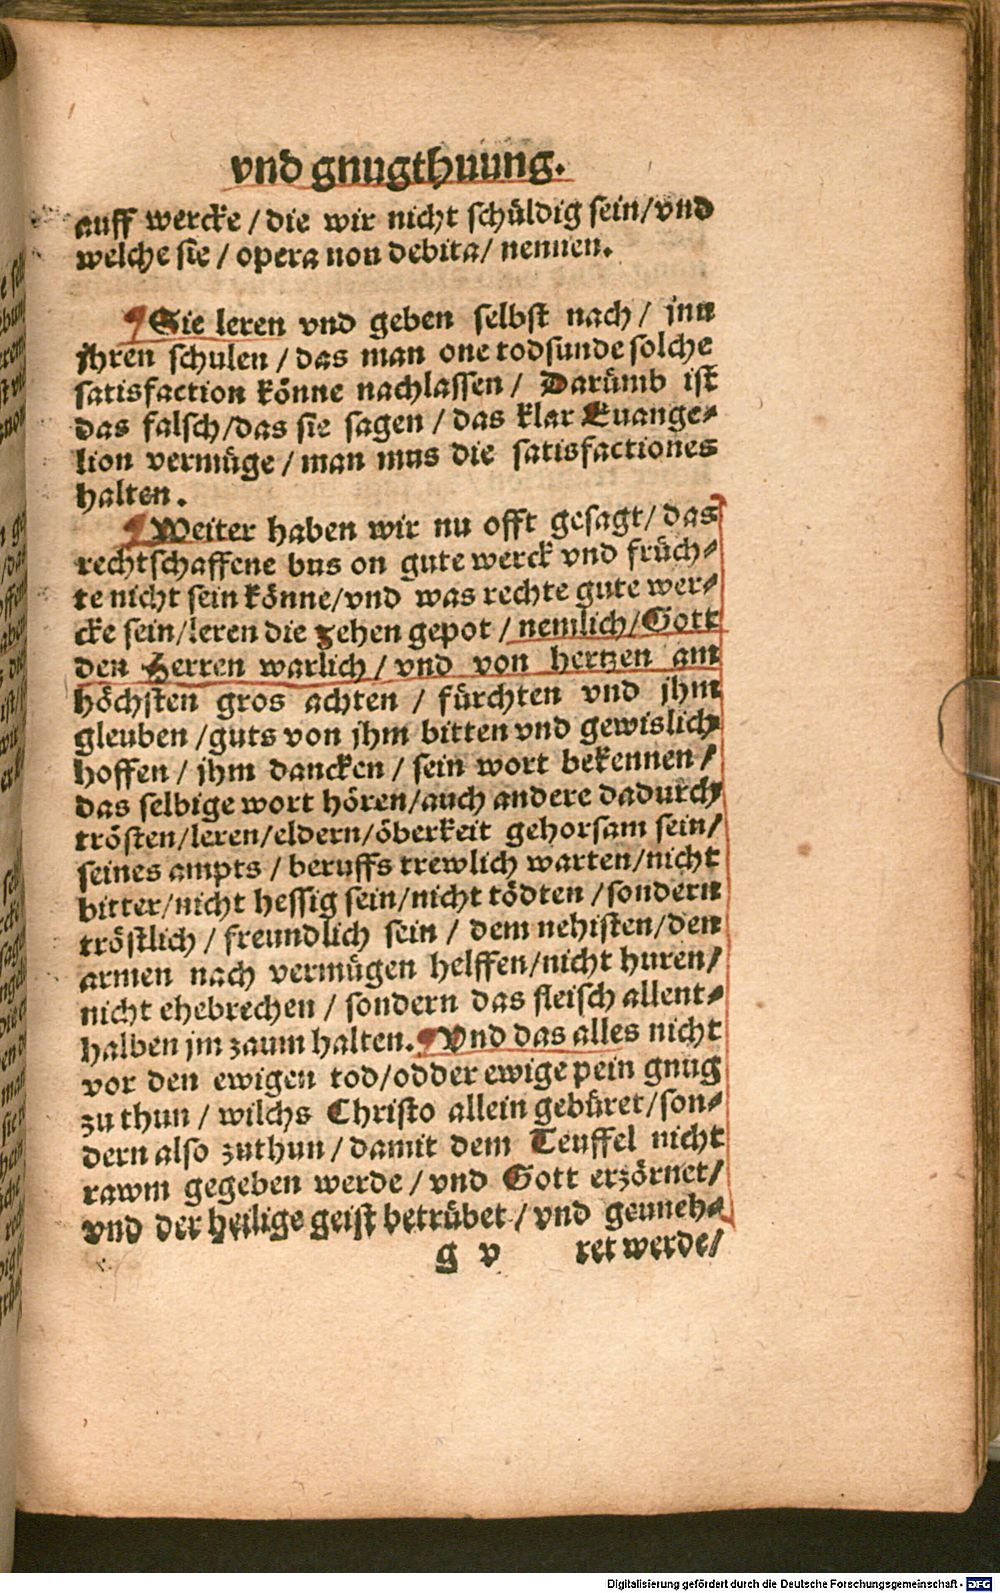 vnd gnugthuung.
auff wercke / die wir nicht schüldig sein/vnd
welche sie / opera non debita/ nennen.
¶Sie leren vnd geben selbst nach / jnn
jhren schulen / das man one todsunde solche
satisfaction könne nachlassen / Darümb ist
das falsch/das sie sagen / das klar Euange-
lion vermüge / man mus die satisfactiones
halten.
¶Weiter haben wir nu offt gesagt/ das
rechtschaffene bus on gute werck vnd früch-
te nicht sein könne/vnd was rechte gute wer-
cke sein/leren die zehen gepot / nemlich/Gott
den Herren warlich / vnd von hertzen am
höchsten gros achten / fürchten vnd jhm
gleuben /guts von jhm bitten vnd gewislich
hoffen / jhm dancken / sein wort bekennen /
das selbige wort hören/auch andere dadurch
trösten/leren/eldern/öberkeit gehorsam sein/
seines ampts / beruffs trewlich warten/nicht
bitter/nicht hessig sein/nicht tödten /sondern
tröstlich / freundlich sein / dem nehisten/den
armen nach vermügen helffen/nicht huren/
nicht ehebrechen / sondern das fleisch allent-
halben jm zaum halten. ¶Vnd das alles nicht
vor den ewigen tod/odder ewige pein gnug
zu thun / wilchs Christo allein gebüret/son-
dern also zuthun / damit dem Teuffel nicht
rawm gegeben werde / vnd Gott erzörnet/
vnd der heilige geist betrübet / vnd geuneh-
g v ret werde/
Digitalisierung gefördert durch die Deutsche Forschungsgemeinschaft - DFG